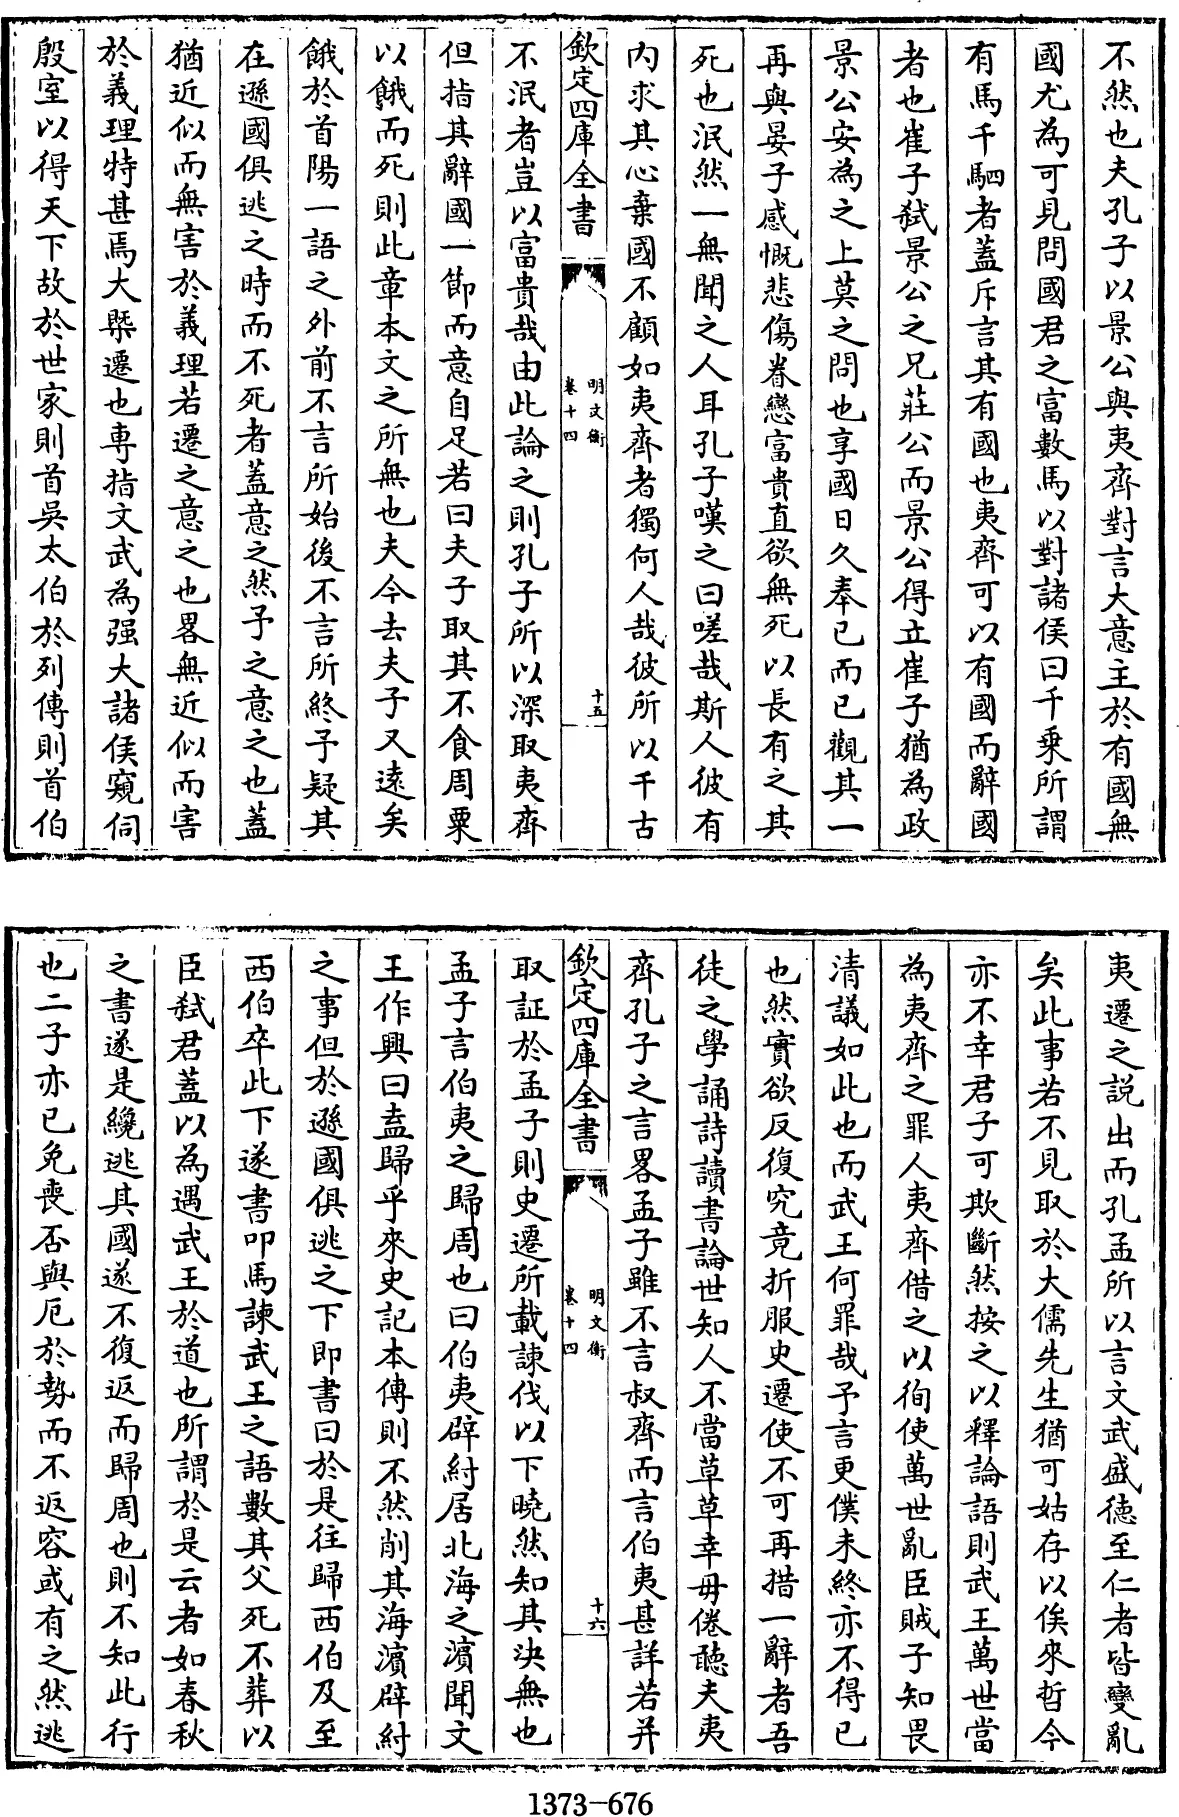 不然也夫孔子以景公與夷齊對言大意主於有國無
國尤為可見問國君之富數馬以對諸侯曰千乗所謂
有馬千駟者蓋斥言其有國也夷齊可以有國而辭國
者也崔子弑景公之兄莊公而景公得立崔子猶為政
景公安為之上莫之問也享國日久奉已而已觀其一
再與晏子感慨悲傷眷戀富貴直欲無死以長有之其
死也泯然一無聞之人耳孔子嘆之曰嗟哉斯人彼有
内求其心棄國不顧如夷齊者獨何人哉彼所以千古
欽定四庫全書
明文衡
卷十四
十五
不泯者豈以富貴哉由此論之則孔子所以深取夷齊
但指其辭國一節而意自足若曰夫子取其不食周粟
以餓而死則此章本文之所無也夫今去夫子又逺矣
餓於首陽一語之外前不言所始後不言所終予疑其
在遜國俱逃之時而不死者蓋意之然予之意之也蓋
猶近似而無害於義理若遷之意之也畧無近似而害
於義理特甚焉大槩遷也専指文武為强大諸侯窺伺
殷室以得天下故於世家則首吳太伯於列傳則首伯
夷遷之説出而孔孟所以言文武盛德至仁者皆變亂
矣此事若不見取於大儒先生猶可姑存以俟來哲今
亦不幸君子可欺斷然按之以釋論語則武王萬世當
為夷齊之罪人夷齊借之以徇使萬世亂臣賊子知畏
清議如此也而武王何罪哉予言更僕未終亦不得已
也然實欲反復究竟折服史遷使不可再措一辭者吾
徒之學誦詩讀書論世知人不當草草幸毋倦聽夫夷
齊孔子之言畧孟子雖不言叔齊而言伯夷甚詳若并
欽定四庫全書
明文衡
卷十四
十六
取証於孟子則史遷所載諫伐以下曉然知其決無也
孟子言伯夷之歸周也曰伯夷辟紂居北海之濱聞文
王作興曰盍歸乎來史記本傳則不然削其海濱辟紂
之事但於遜國俱逃之下即書曰於是往歸西伯及至
西伯卒此下遂書叩馬諫武王之語數其父死不葬以
臣弑君蓋以為遇武王於道也所謂於是云者如春秋
之書遂是纔逃其國遂不復返而歸周也則不知此行
也二子亦已免喪否與厄於勢而不返容或有之然逃
1373-676